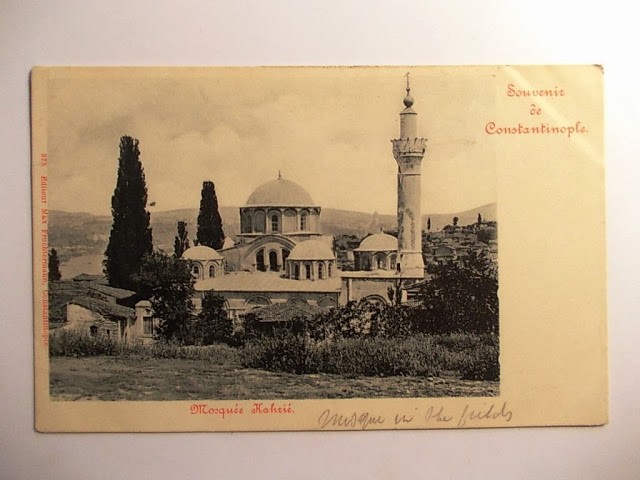 Souvenir
de
Constantinople.
Editeur Max Fruchtermann, Constantinople
Mosquée Kahrié.
Mosque in the fields